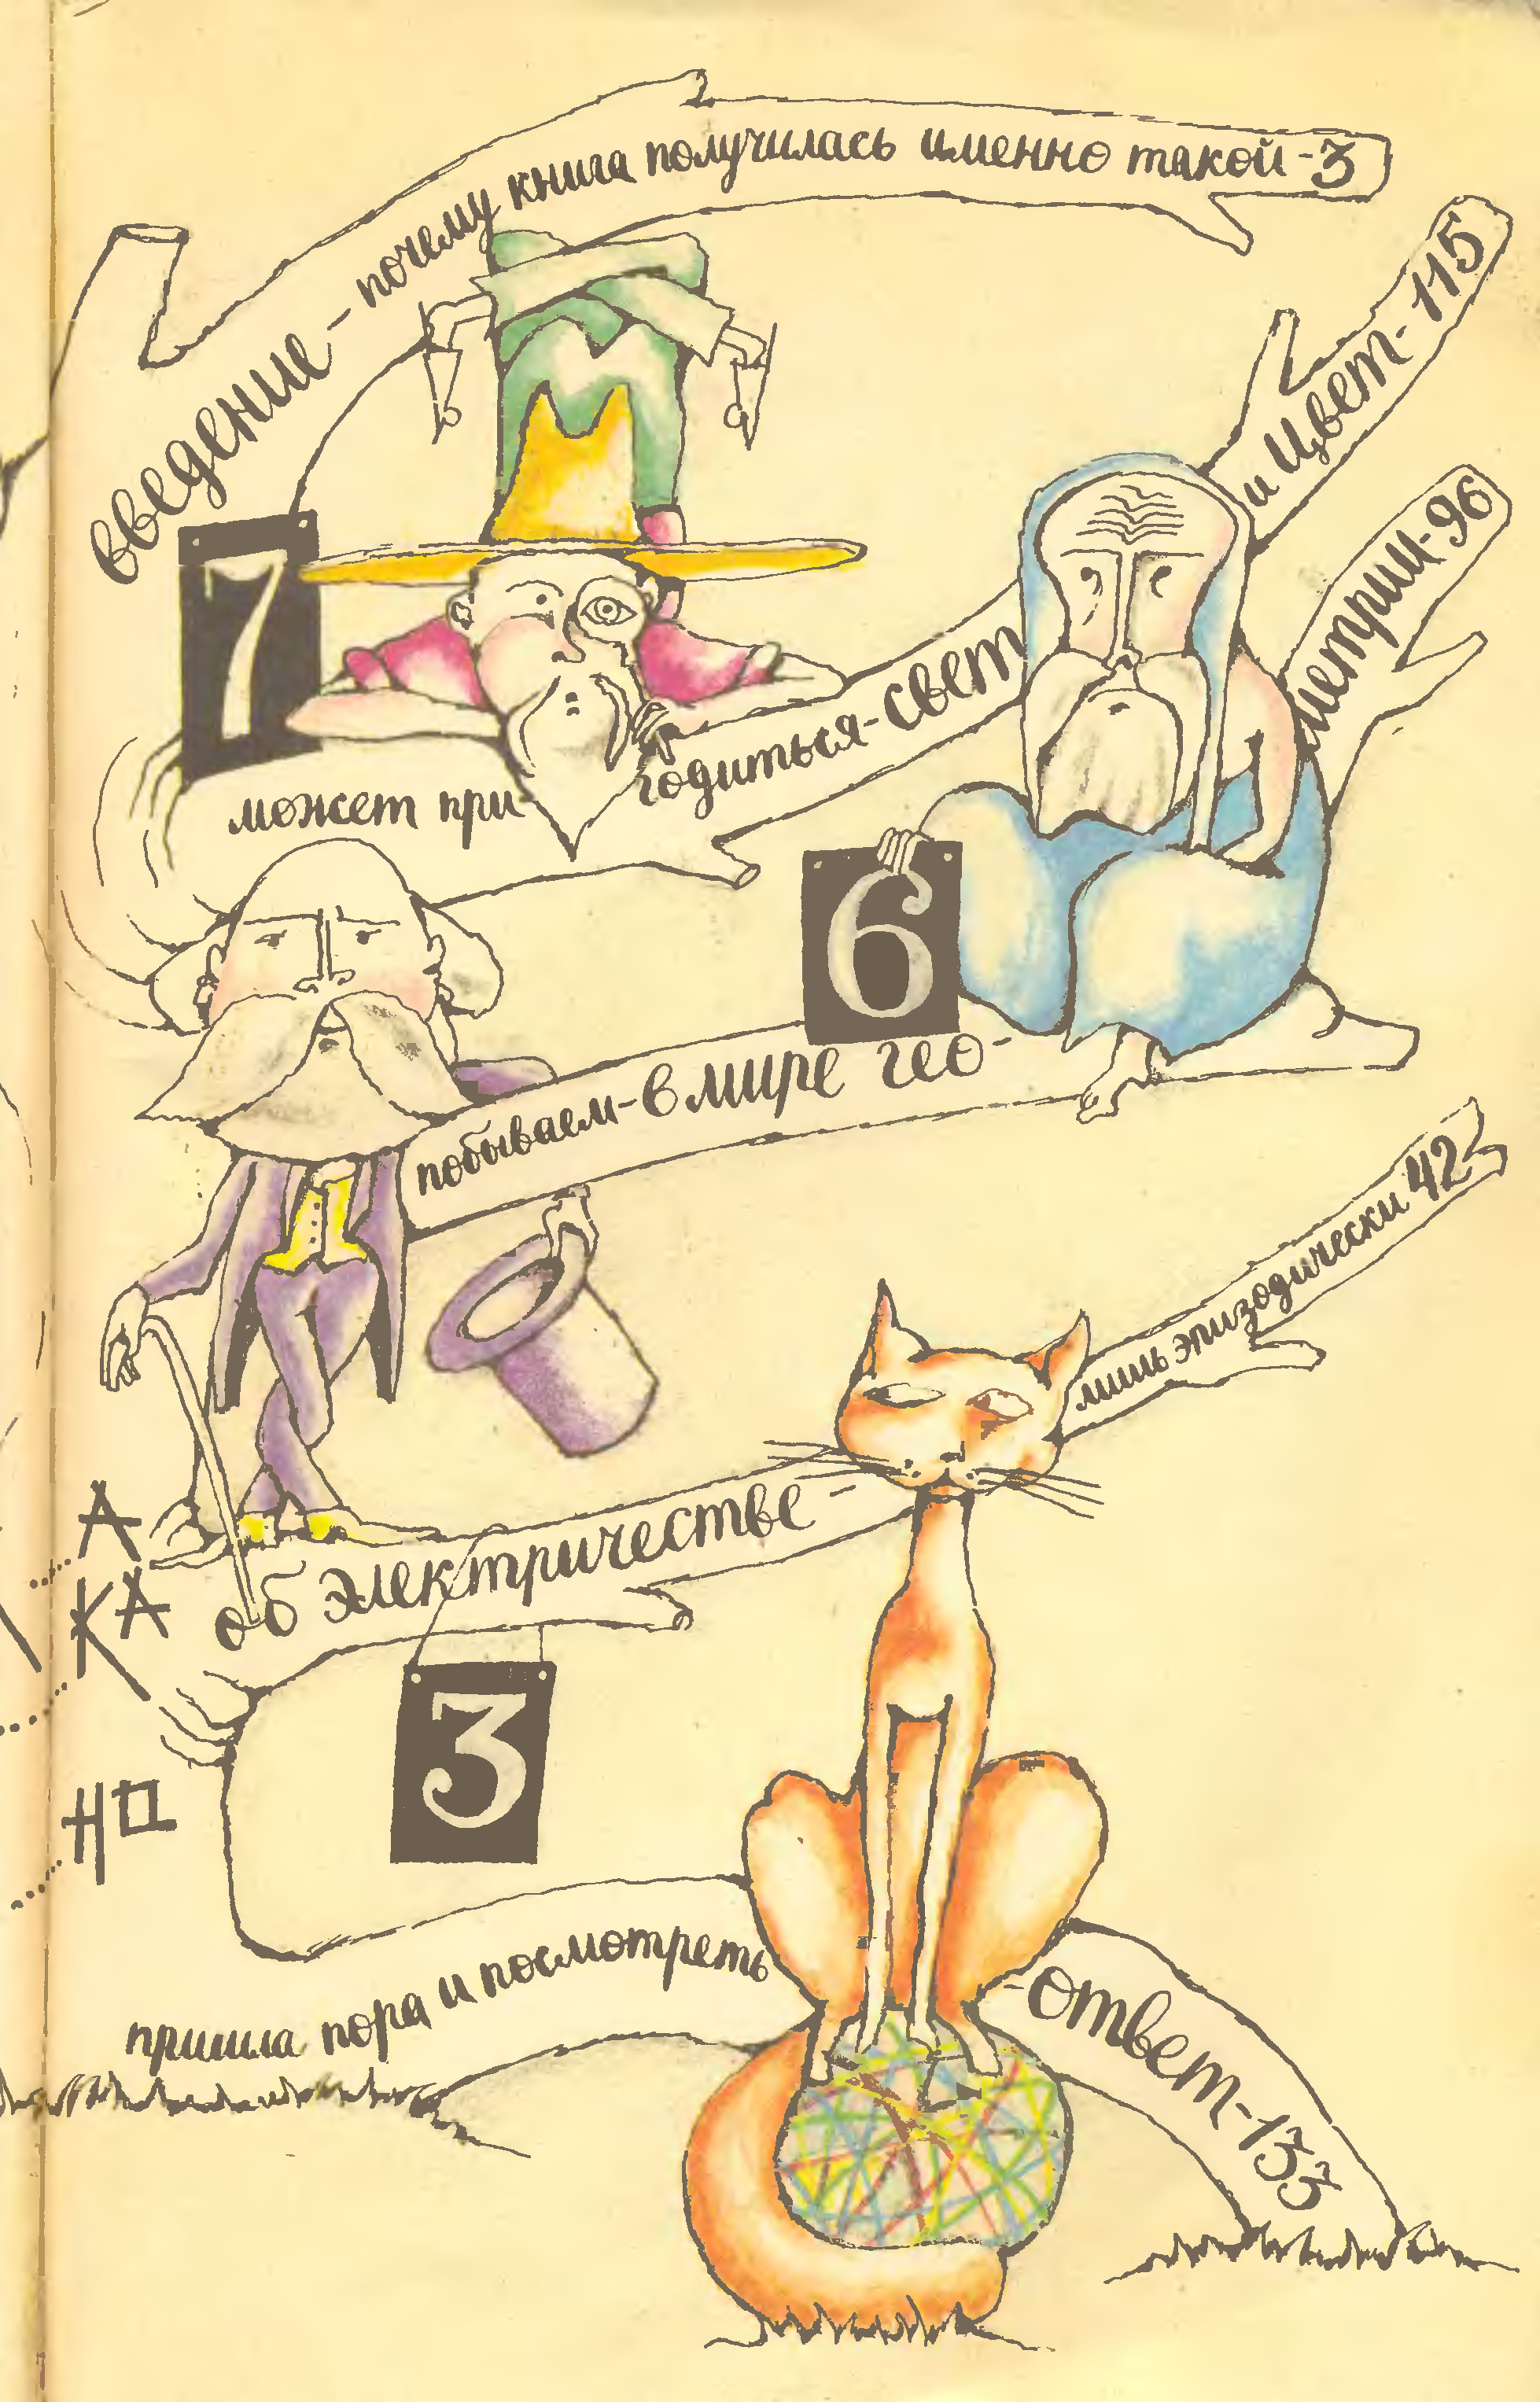 введение - почему книга получилась именно такой - 3
7
может при годиться - свет и цвет - 115
6
побываем - в мире гео-
метрии - 96
А
КА
об электричестве - лишь эпизодически 42
3
НО
пришла пора и посмотреть - ответ - 133